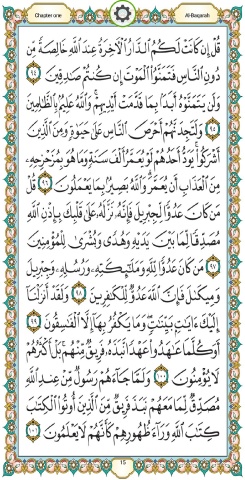 Chapter one
Al-Baqarah
قُلْ إِن كَانَتْ لَكُمُ الدَّارُ الْآخِرَةُ عِندَ اللَّهِ خَالِصَةً مِّن
دُونِ النَّاسِ فَتَمَنَّوُا الْمَوْتَ إِن كُنتُمْ صَادِقِينَ ٩٤
وَلَن يَتَمَنَّوْهُ أَبَدًا بِمَا قَدَّمَتْ أَيْدِيهِمْ وَاللَّهُ عَلِيمٌ بِالظَّالِمِينَ
٩٥ وَلَتَجِدَنَّهُمْ أَحْرَصَ النَّاسِ عَلَىٰ حَيَوٰةٍ وَمِنَ الَّذِينَ
أَشْرَكُوا يَوَدُّ أَحَدُهُمْ لَوْ يُعَمَّرُ أَلْفَ سَنَةٍ وَمَا هُوَ بِمُزَحْزِحِهِ
مِنَ الْعَذَابِ أَن يُعَمَّرَ وَاللَّهُ بَصِيرٌ بِمَا يَعْمَلُونَ ٩٦ قُلْ
مَن كَانَ عَدُوًّا لِّجِبْرِيلَ فَإِنَّهُ نَزَّلَهُ عَلَىٰ قَلْبِكَ بِإِذْنِ اللَّهِ
مُصَدِّقًا لِّمَا بَيْنَ يَدَيْهِ وَهُدًى وَبُشْرَىٰ لِلْمُؤْمِنِينَ
٩٧ مَن كَانَ عَدُوًّا لِّلَّهِ وَمَلَٰئِكَتِهِ وَرُسُلِهِ وَجِبْرِيلَ
وَمِيكَىٰلَ فَإِنَّ اللَّهَ عَدُوٌّ لِّلْكَٰفِرِينَ ٩٨ وَلَقَدْ أَنزَلْنَا
إِلَيْكَ ءَايَٰتٍ بَيِّنَٰتٍ وَمَا يَكْفُرُ بِهَا إِلَّا الْفَٰسِقُونَ ٩٩
أَوَكُلَّمَا عَٰهَدُوا عَهْدًا نَّبَذَهُ فَرِيقٌ مِّنْهُم بَلْ أَكْثَرُهُمْ
لَا يُؤْمِنُونَ ١٠٠ وَلَمَّا جَاءَهُمْ رَسُولٌ مِّنْ عِندِ اللَّهِ
مُصَدِّقٌ لِّمَا مَعَهُمْ نَبَذَ فَرِيقٌ مِّنَ الَّذِينَ أُوتُوا الْكِتَٰبَ
كِتَٰبَ اللَّهِ وَرَاءَ ظُهُورِهِمْ كَأَنَّهُمْ لَا يَعْلَمُونَ ١٠١
15